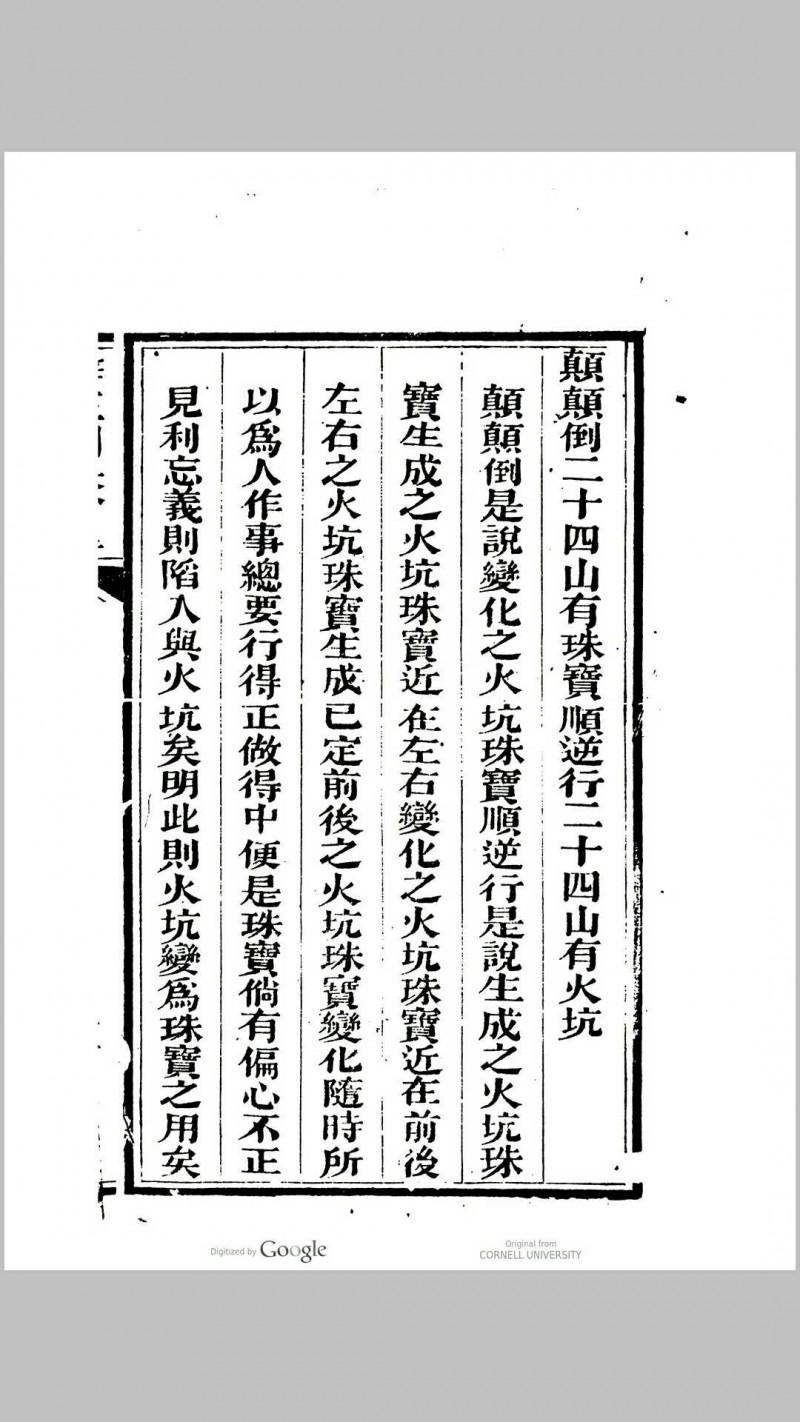 顛顛倒二十四山有珠寶順逆行二十四山有火坑
顛顛倒是說變化之火坑珠寶順逆行是說生成之火坑珠
寶生成之火坑珠寶近在左右變化之火坑珠寶近在前後
左右之火坑珠寶生成已定前後之火坑珠寶變化隨時所
以為人作事總要行得正做得中便是珠寶倘有偏心不正
見利忘義則陷人與火坑矣明此則火坑變為珠寶之用矣
Digitized by Google
Original from
CORNELL UNIVERSITY